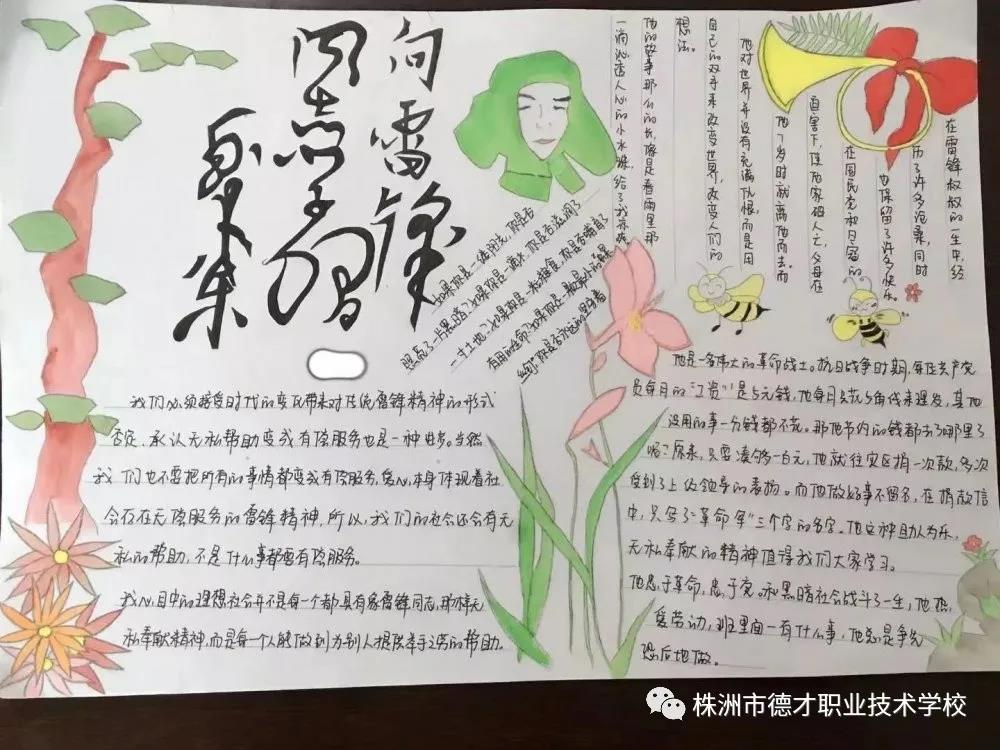 向雷锋
同志学习
我们必须接受时代的变化带来对传统雷锋精神的形式
否定、承认无私帮助变成有偿服务也是一种进步。当然
我们也不要把所有的事情都变成有偿服务,爱心,本身体现着社
会存在无偿服务的雷锋精神,所以,我们的社会还会有无
私的帮助,不是什么事都要有偿服务。
我心目中的理想社会并不是每一个都具有象雷锋同志,那样无
私奉献精神,而是每一个人能做到为别人提供举手之劳的帮助。
如果你是一缕阳光,你是否
照亮了一片黑暗?如果你是一滴水,你是否滋润了
一寸土地?如果你是一粒粮食,你是否哺育了
有用的生命?如果你是一颗最小的螺
丝钉,你是否永远的坚守着
在雷锋叔叔的一生中,经
历了许多沧桑,同时
也保留了许多快乐。
在国民党和日寇的
直害下,使他家破人亡,父母在
他7岁时就离他而去。而
他对世界并没有充满仇恨,而是用
自己的双手来改变世界,改变人们的
想法。
他的故事那么的长,像是春雨里那
一滴沁透人心的小水珠,给了我
他是一名伟大的革命战士。抗日战争时期,每位共产党
员每月的"工资"是5元钱,他每月只花5角钱来理发,其他
没用的事一分钱都不花。那他节约的钱都去了哪里了
呢?原来,只要凑够一百元,他就往灾区捐一次款,多次
受到了上级领导的表扬。而他做好事不留名,在捐款信
中,只写了"革命军"三个字的名字。他这种助人为乐,
无私奉献的精神值得我们大家学习。
他忠于革命,忠于党。和黑暗社会战斗了一生,他热
爱劳动,班里面一有什么事,他总是争先
恐后地做。
株洲市德才职业技术学校